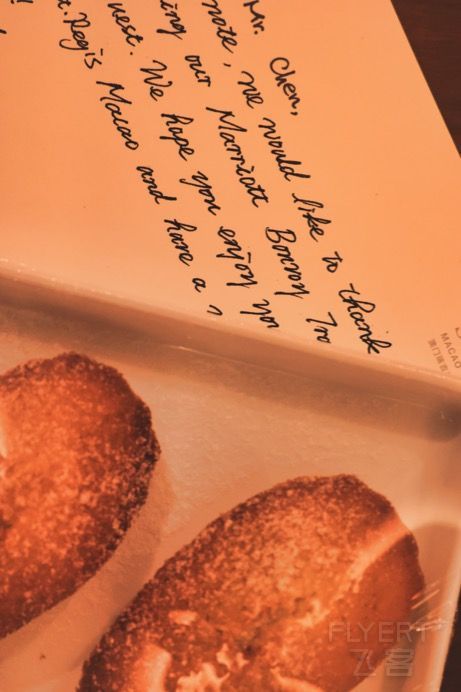 Mr. Chen,
note, we would like to thank
ing our Marriott Bonvoy
uest. We hope you enjoy
t. Regis Macao and have a
MACAO
澳门瑞吉
FLYERT
飞客